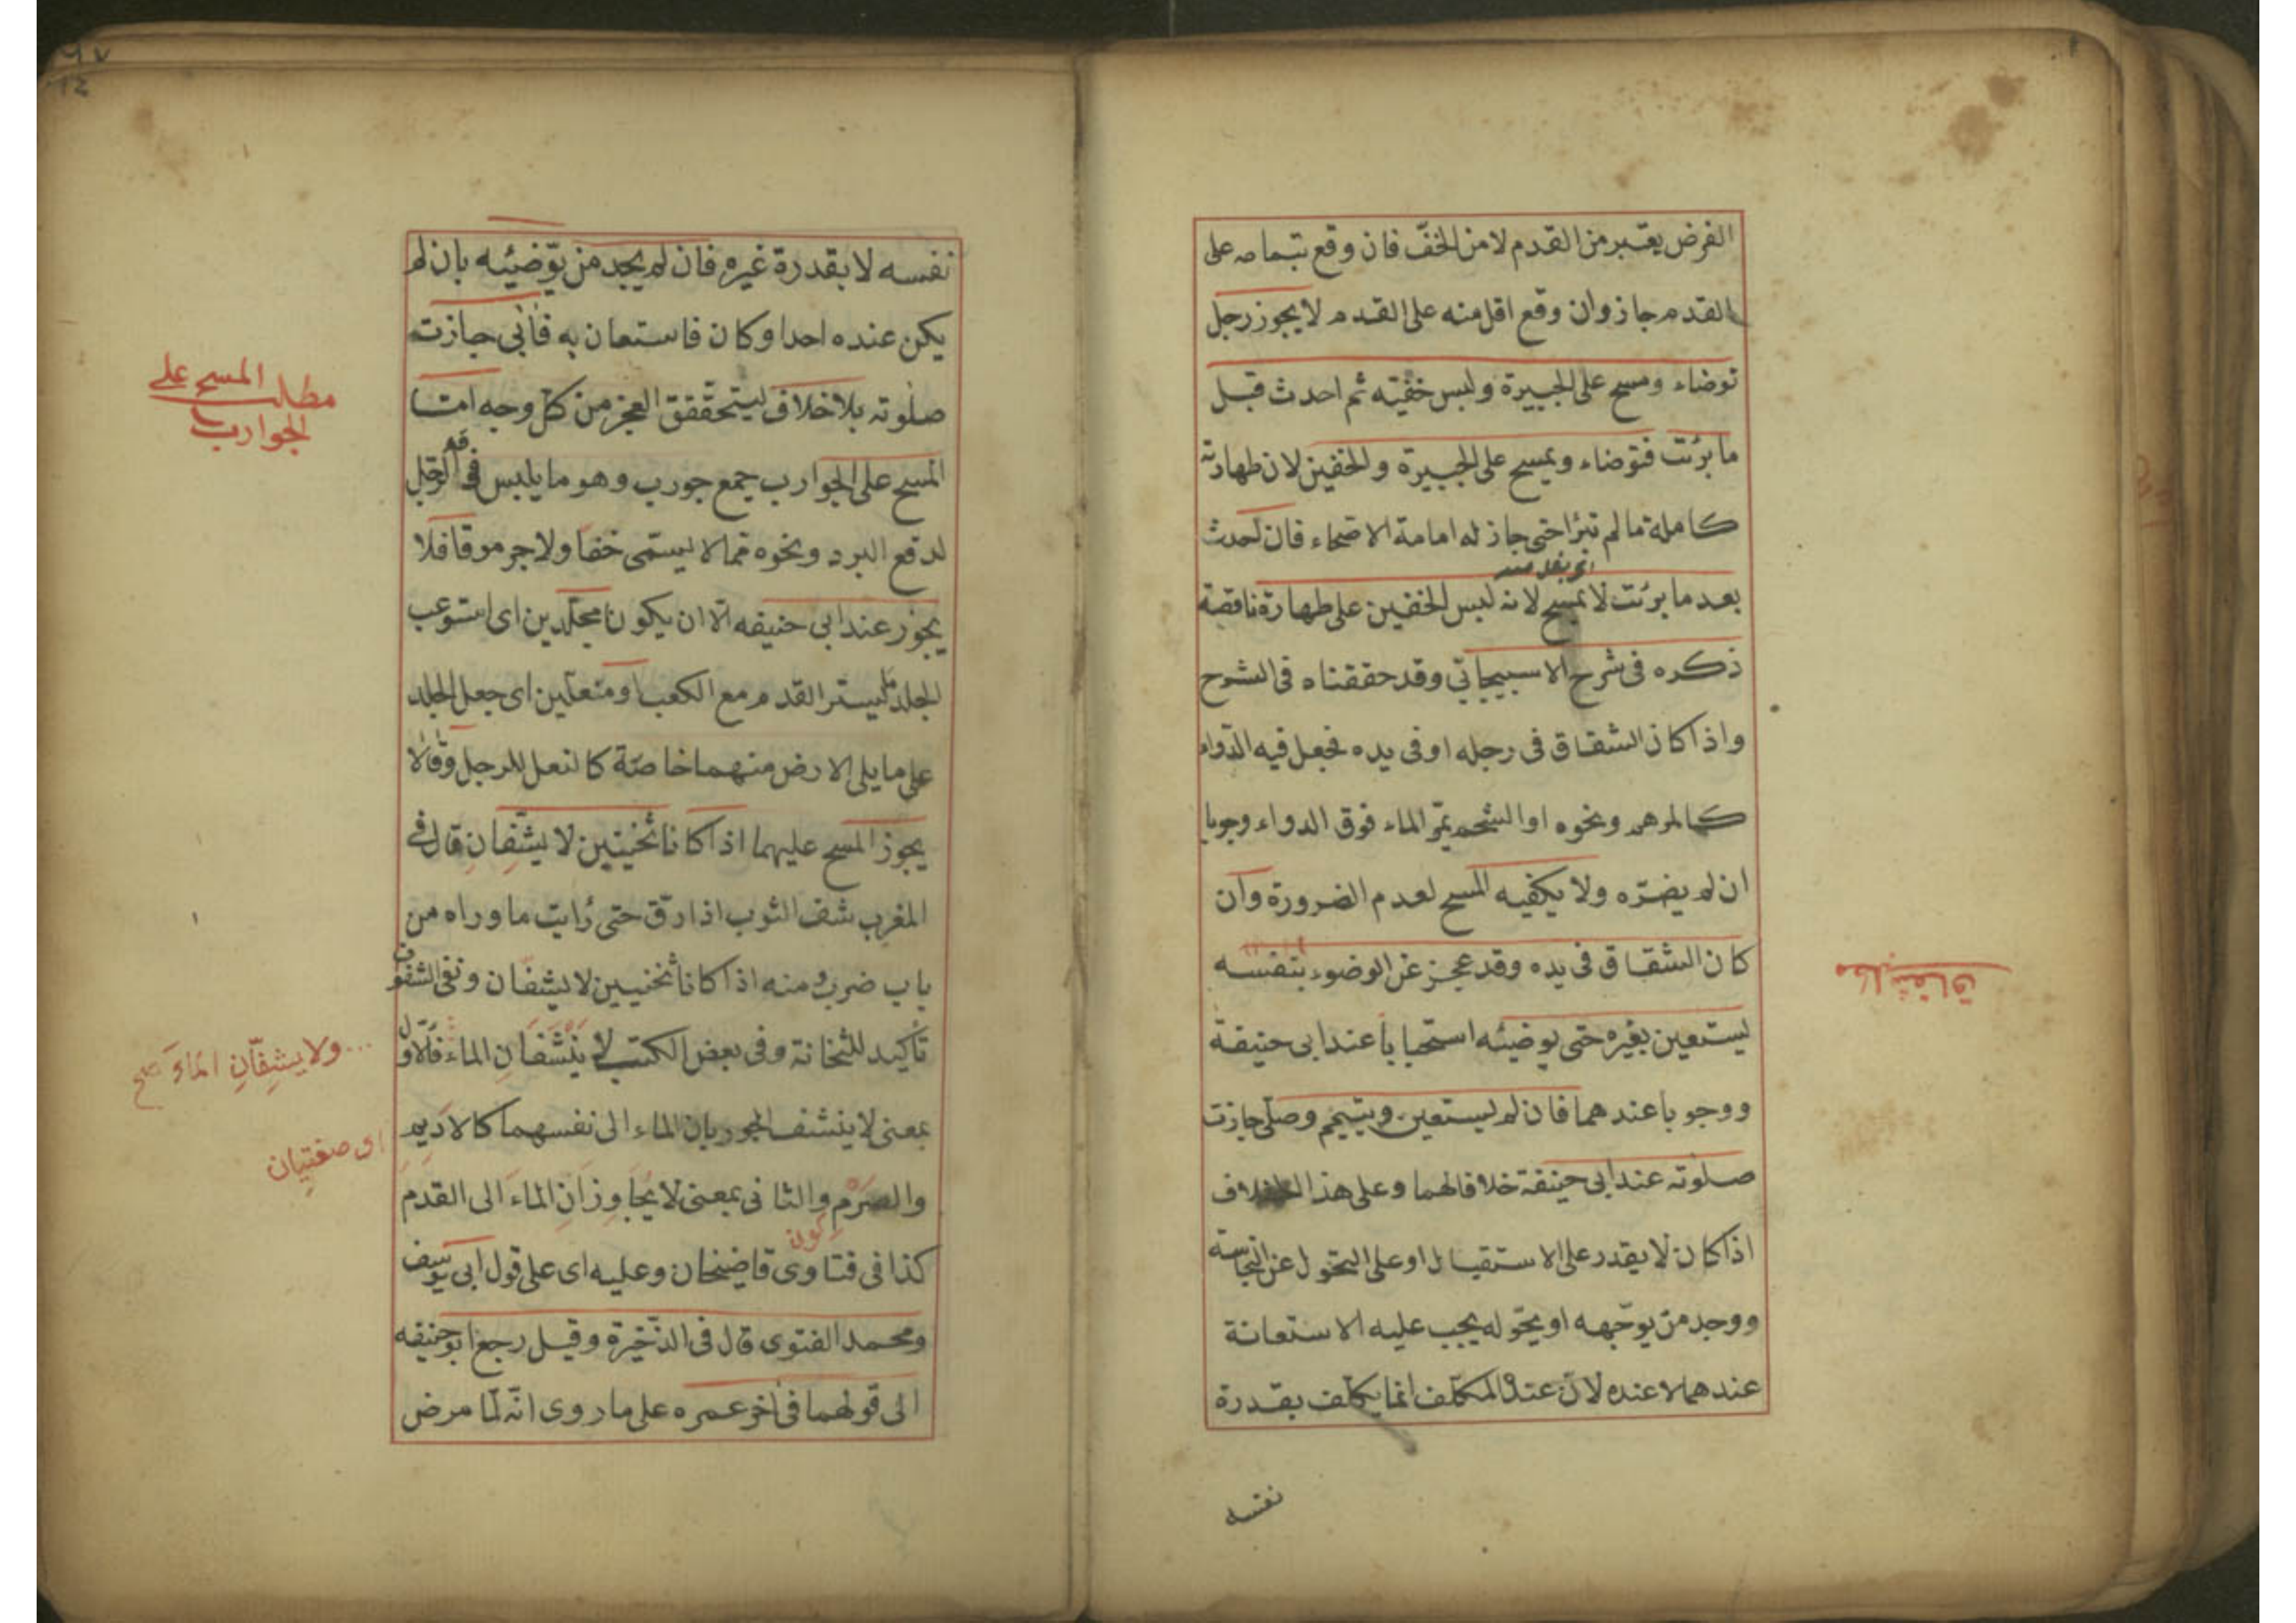 الفرض يعتبر من القدم لا من الخفّ فان وقع بتمامه على
القدم جاز وان وقع اقل منه على القدم لا يجوز رجل
توضاء ومسح على الجبيرة ولبس خفيّه ثم احدث قبل
ما برئت فتوضاء ويمسح على الجبيرة والخفين لان طهارته
كاملة ما لم تبرٔا حتى جاز له امامة الاصحاء فان احدث
بعد ما برئت لا يمسح لانه لبس الخفين على طهارة ناقصة
ذكره فى شرح الاسبيجابّى وقد حققناه فى الشرح
واذا كان الشقاق فى رجله او فى يده فجعل فيه الدّواء
كالمرهم ونحوه او الشحم يمّر الماء فوق الدواء وجوبا
ان لم يضرّه ولا يكفيه المسح لعدم الضرورة وان
كان الشقاق فى يده وقد عجز عن الوضوء بنفسه
ليستعين بغيره حتى يوضيئه استحبابا عند ابى حنيفة
ووجوبا عندهما فان لم يستعين ويتيمم وصلّى جازت
صلٰوته عند ابى حنيفة خلافا لهما وعلى هذا الخلاف
اذا كان لا يقدر على الاستقبال او على التحول عن النجاسة
ووجد من يوجّهه او يحوّله يجب عليه الاستعانة
عندهما لا عنده لانّ عنده المكلّف انما يكلّف بقدرة
نفسه
مطلب شقاق
نفسه لا بقدرة غيره فان لم يجد من يوّضيئه بان لم
يكن عنده احد او كان فاستعان به فابٰى جازت
صلٰوته بلا خلاف ليتحقّقق العجز من كلّ وجه امّا
المسح على الجوارب جمع جورب وهو ما يلبس فى الرّجل
لدفع البرد ونحوه ممّا لا يسمّى خفا ولا جرموقا فلا
يجوز عند ابى حنيفه الّا ان يكونا مجلّدين اى استوعب
الجلد ما يستر القدم مع الكعب او منعلين اى جعل الجلد
على ما يلى الارض منهما خاصّة كالنعل للرجل وقالا
يجوز المسح عليهما اذا كانا ثخينين لا يشّفان قال فى
المغرب شف الثوب اذا رقّ حتى رٔايت ما وراه من
باب ضرب ومنه اذا كانا ثخنيين لا يشفّان ونفى الشفوف
تاكيد للثخانة وفى بعض الكتب لا يَنْشَفَانِ الماء فالاوّل
بمعنى لا ينشف الجوربان الماء الى نفسهما كالاديم
والصَرْمِ والثانى بمعنى لا يُجَاوِزَانِ الماءَ الى القدم
كذا فى فتاوى قاضيخان وعليه اى على قول ابى يوسف
ومحمد الفتوى قال فى الذّخيرة وقيل رجع ابو حنيفه
الى قولهما فى اٰخر عمره على ما روى انّه لمّا مرض
مطلب المسح على
الجوارب
ولا يشِفّانِ الماءَ صح
اى صغتِيان
كون